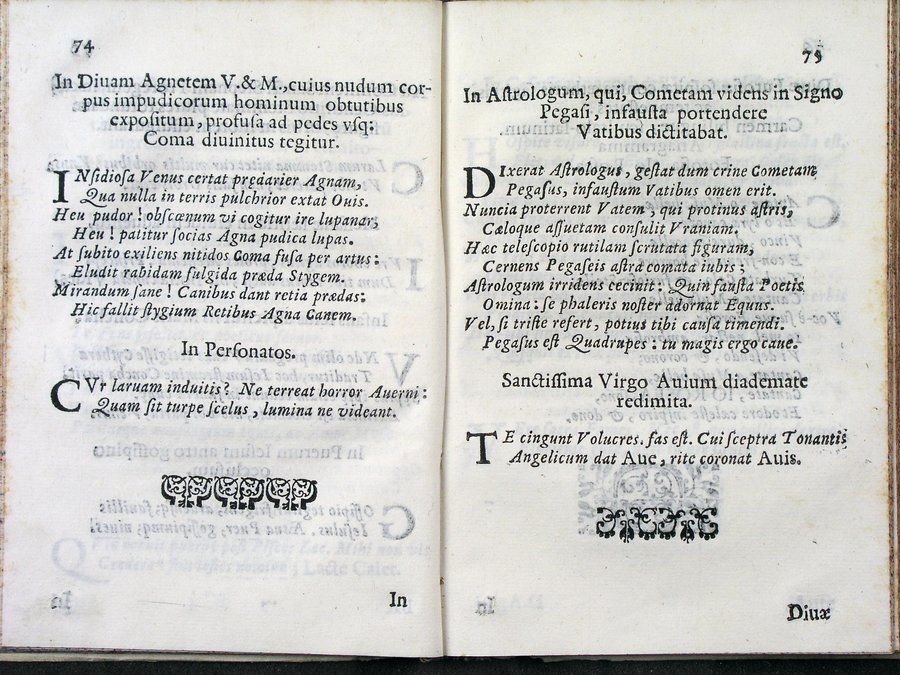 74
In Diuam Agnetem V. & M., cuius nudum cor-
pus impudicorum hominum obtutibus
expositum, profusa ad pedes vsq:
Coma diuinitus tegitur.
INsidiosa Venus certat prędarier Agnam,
Qua nulla in terris pulchrior extat Ouis.
Heu pudor! obscœnum vi cogitur ire lupanar,
Heu! patitur socias Agna pudica lupas.
At subito exiliens nitidos Coma fusa per artus:
Eludit rabidam fulgida præda Stygem.
Mirandum sane! Canibus dant retia prædas:
Hic fallit stygium Retibus Agna Canem.
In Personatos.
CVr laruam induitis? Ne terreat horror Auerni:
Quam sit turpe scelus, lumina ne videant.
In
75
In Astrologum, qui, Cometam videns in Signo
Pegasi, infausta portendere
Vatibus dictitabat.
DIxerat Astrologus, gestat dum crine Cometam
Pegasus, infaustum Vatibus omen erit.
Nuncia proterrent Vatem, qui protinus astris,
Cæloque assuetam consulit Vraniam.
Hæc telescopio rutilam scrutata figuram,
Cernens Pegaseis astra comata iubis;
Astrologum irridens cecinit: Quin fausta Poetis
Omina: se phaleris noster adornat Equus.
Vel, si triste refert, potius tibi causa timendi.
Pegasus est Quadrupes: tu magis ergo caue.
Sanctissima Virgo Auium diademate
redimita.
TE cingunt Volucres. fas est. Cui sceptra Tonantis
Angelicum dat Aue, rite coronat Auis.
Diuæ